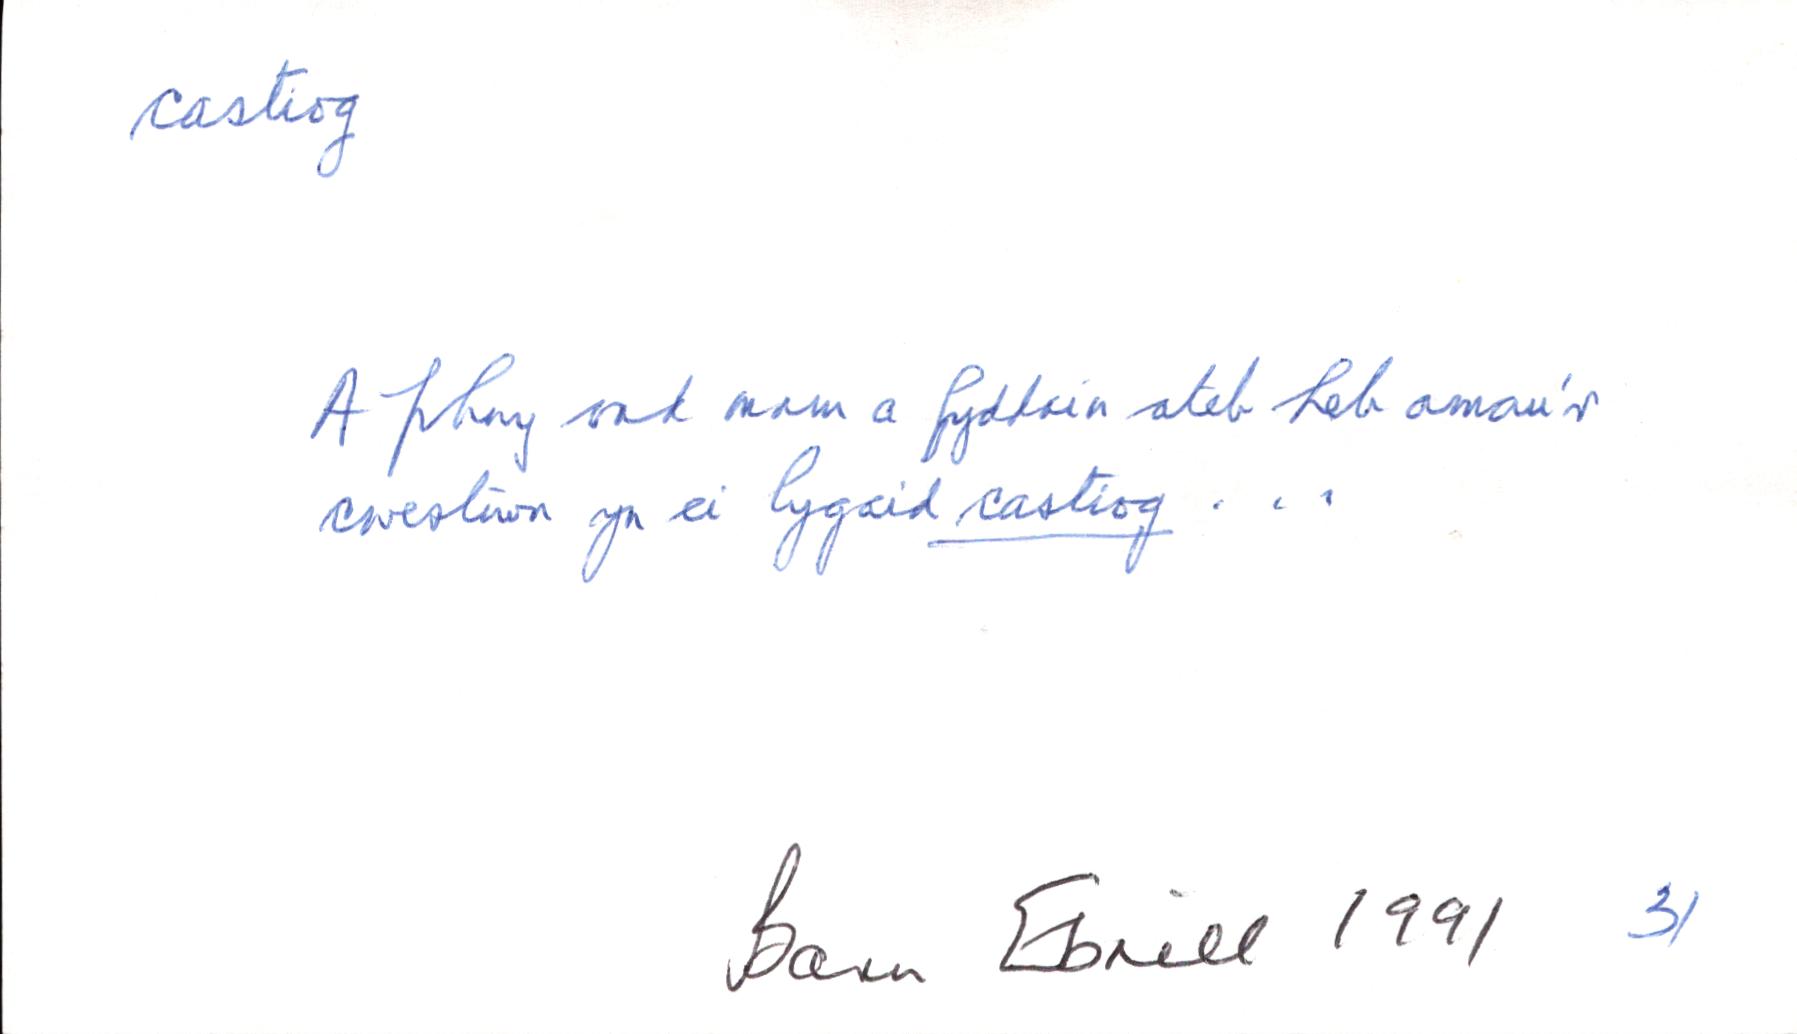 castiog
A phwy ond mam a fyddain ateb heb amau'r
cwestiwn yn ei lygaid castiog . . .
Barn Ebrill 1991 31